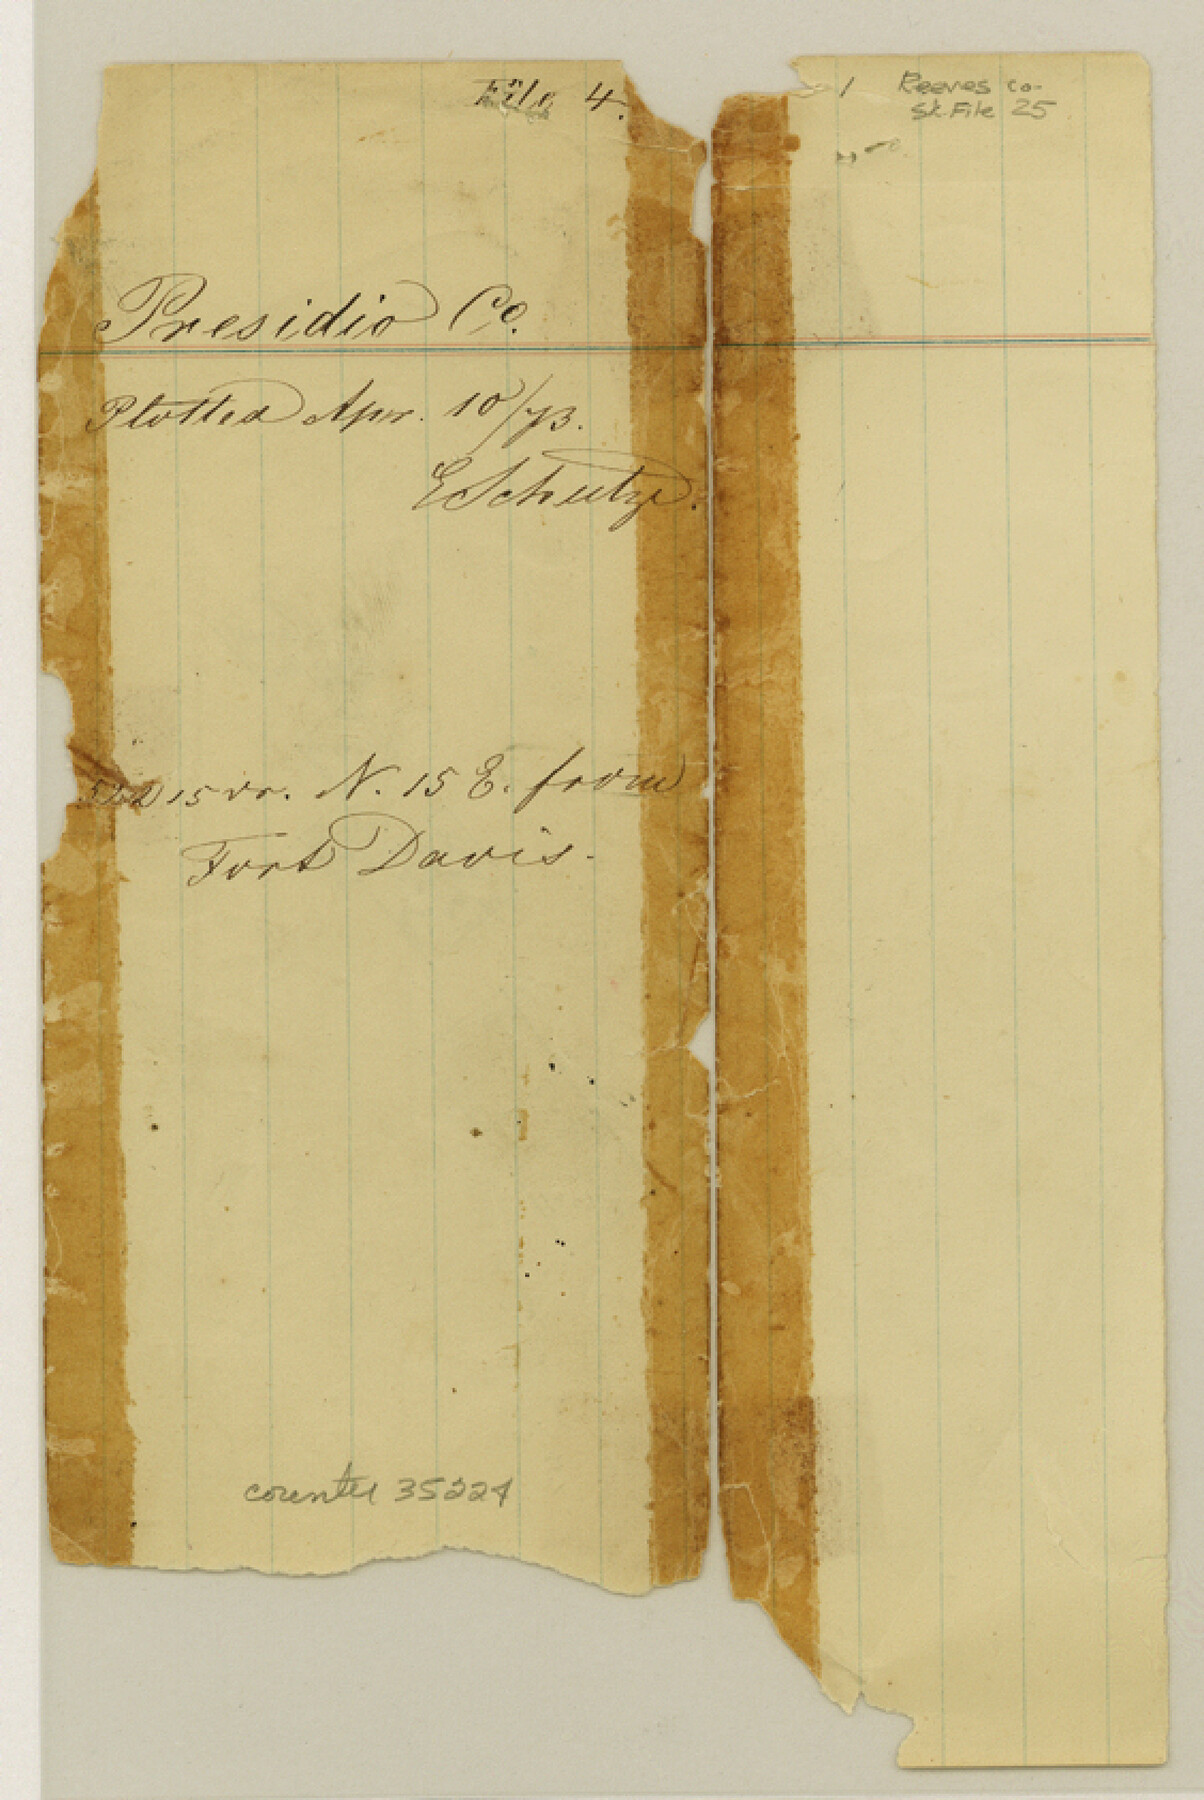 File 4.
Presidio Co.
Plotted Apr. 10/73.
E Schutze.
15 vr. N. 15 E. from
Fort Davis.
counter 35224
1
Reeves Co.
Sk. File 25